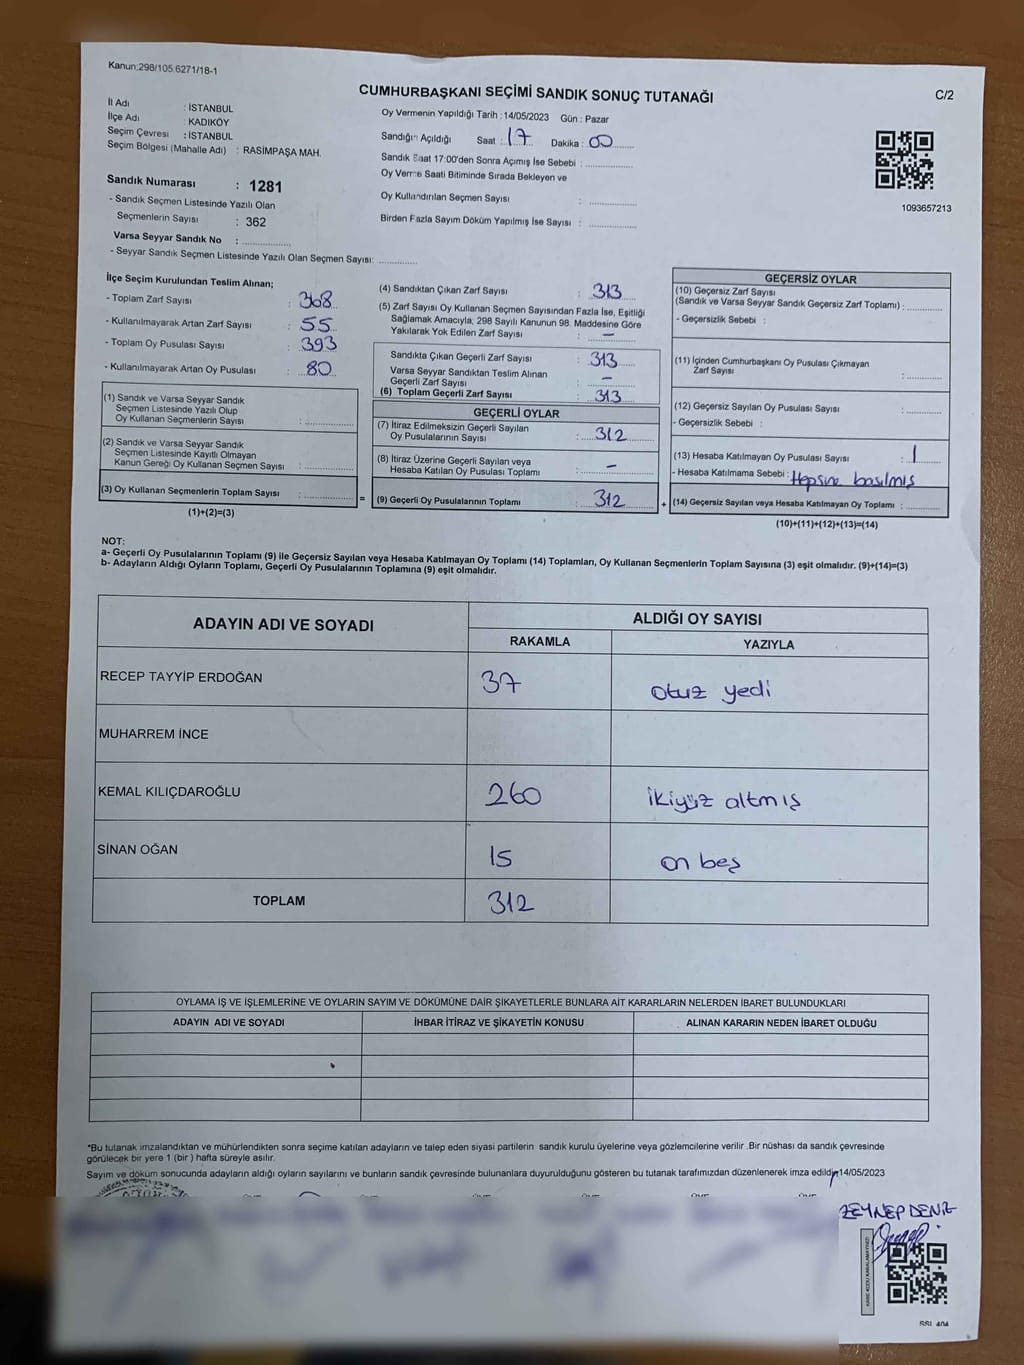 Kanun:298/105.6271/18-1
CUMHURBAŞKANI SEÇİMİ SANDIK SONUÇ TUTANAĞI
C/2
İl Adı : İSTANBUL
İlçe Adı : KADIKÖY
Seçim Çevresi : İSTANBUL
Seçim Bölgesi (Mahalle Adı) : RASİMPAŞA MAH.
Sandık Numarası : 1281
- Sandık Seçmen Listesinde Yazılı Olan
Seçmenlerin Sayısı : 362
Varsa Seyyar Sandık No :
- Seyyar Sandık Seçmen Listesinde Yazılı Olan Seçmen Sayısı:
Oy Vermenin Yapıldığı Tarih : 14/05/2023 Gün : Pazar
Sandığın Açıldığı Saat : 17 Dakika : 00
Sandık Saat 17:00'den Sonra Açımış İse Sebebi :
Oy Verme Saati Bitiminde Sırada Bekleyen ve
Oy Kullandırılan Seçmen Sayısı :
Birden Fazla Sayım Döküm Yapılmış İse Sayısı :
1093657213
İlçe Seçim Kurulundan Teslim Alınan;
- Toplam Zarf Sayısı : 368
- Kullanılmayarak Artan Zarf Sayısı : 55
- Toplam Oy Pusulası Sayısı : 393
- Kullanılmayarak Artan Oy Pusulası : 80
(1) Sandık ve Varsa Seyyar Sandık
Seçmen Listesinde Yazılı Olup
Oy Kullanan Seçmenlerin Sayısı :
(2) Sandık ve Varsa Seyyar Sandık
Seçmen Listesinde Kayıtlı Olmayan
Kanun Gereği Oy Kullanan Seçmen Sayısı :
(3) Oy Kullanan Seçmenlerin Toplam Sayısı : =
(1)+(2)=(3)
(4) Sandıktan Çıkan Zarf Sayısı : 313
(5) Zarf Sayısı Oy Kullanan Seçmen Sayısından Fazla İse, Eşitliği
Sağlamak Amacıyla, 298 Sayılı Kanunun 98. Maddesine Göre
Yakılarak Yok Edilen Zarf Sayısı : -
Sandıkta Çıkan Geçerli Zarf Sayısı : 313
Varsa Seyyar Sandıktan Teslim Alınan
Geçerli Zarf Sayısı : -
(6) Toplam Geçerli Zarf Sayısı : 313
GEÇERLİ OYLAR
(7) İtiraz Edilmeksizin Geçerli Sayılan
Oy Pusulalarının Sayısı : 312
(8) İtiraz Üzerine Geçerli Sayılan veya
Hesaba Katılan Oy Pusulası Toplamı : -
(9) Geçerli Oy Pusulalarının Toplamı : 312 +
GEÇERSİZ OYLAR
(10) Geçersiz Zarf Sayısı
(Sandık ve Varsa Seyyar Sandık Geçersiz Zarf Toplamı) :
- Geçersizlik Sebebi :
(11) İçinden Cumhurbaşkanı Oy Pusulası Çıkmayan
Zarf Sayısı :
(12) Geçersiz Sayılan Oy Pusulası Sayısı :
- Geçersizlik Sebebi :
(13) Hesaba Katılmayan Oy Pusulası Sayısı : 1
- Hesaba Katılmama Sebebi : Hepsine basılmış
(14) Geçersiz Sayılan veya Hesaba Katılmayan Oy Toplamı :
(10)+(11)+(12)+(13)=(14)
NOT:
a- Geçerli Oy Pusulalarının Toplamı (9) ile Geçersiz Sayılan veya Hesaba Katılmayan Oy Toplamı (14) Toplamları, Oy Kullanan Seçmenlerin Toplam Sayısına (3) eşit olmalıdır. (9)+(14)=(3)
b- Adayların Aldığı Oyların Toplamı, Geçerli Oy Pusulalarının Toplamına (9) eşit olmalıdır.
ADAYIN ADI VE SOYADI ALDIĞI OY SAYISI
RAKAMLA YAZIYLA
RECEP TAYYİP ERDOĞAN 37 otuz yedi
MUHARREM İNCE
KEMAL KILIÇDAROĞLU 260 ikiyüz altmış
SİNAN OĞAN 15 on beş
TOPLAM 312
OYLAMA İŞ VE İŞLEMLERİNE VE OYLARIN SAYIM VE DÖKÜMÜNE DAİR ŞİKAYETLERLE BUNLARA AİT KARARLARIN NELERDEN İBARET BULUNDUKLARI
ADAYIN ADI VE SOYADI İHBAR İTİRAZ VE ŞİKAYETİN KONUSU ALINAN KARARIN NEDEN İBARET OLDUĞU
*Bu tutanak imzalandıktan ve mühürlendikten sonra seçime katılan adayların ve talep eden siyasi partilerin sandık kurulu üyelerine veya gözlemcilerine verilir .Bir nüshası da sandık çevresinde
görülecek bir yere 1 (bir ) hafta süreyle asılır.
Sayım ve döküm sonucunda adayların aldığı oyların sayılarını ve bunların sandık çevresinde bulunanlara duyurulduğunu gösteren bu tutanak tarafımızdan düzenlenerek imza edildi. 14/05/2023
ZEYNEP DENİZ